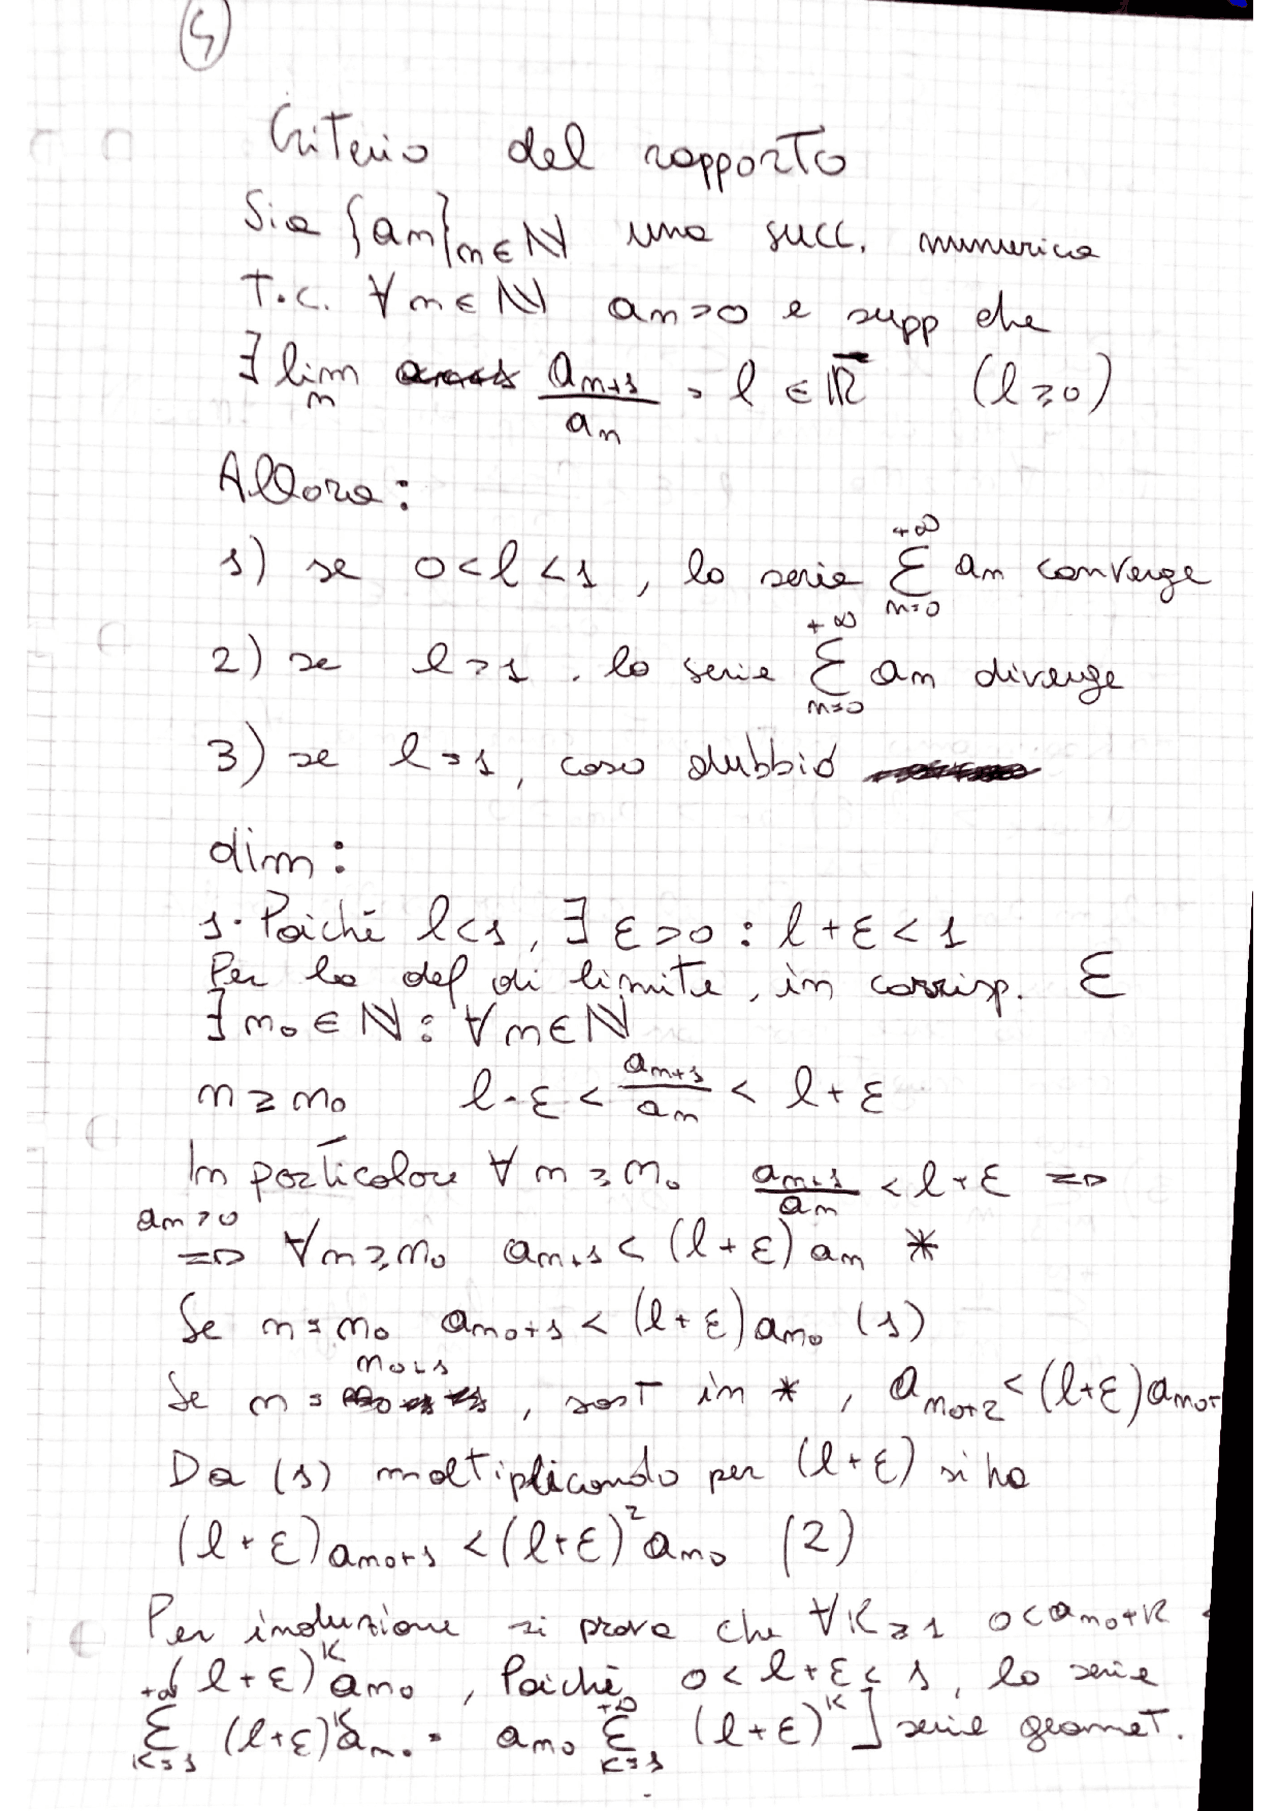 (5)
Criterio del rapporto
Sia {an}n∈ℕ una succ. numerica
T.c. ∀n∈ℕ an>0 e supp che
∃ lim n an+1/an = l ∈ ℝ̅ (l≥0)
Allora:
1) se 0<l<1, la serie +∞ Σ n=0 an converge
2) se l>1, la serie +∞ Σ n=0 an diverge
3) se l=1, caso dubbio
dim:
1. Poiché l<1, ∃ ε>0 : l+ε<1
Per la def di limite, in corrisp. ε
∃ n₀∈ℕ : ∀n∈ℕ
n≥n₀ l-ε < an+1/an < l+ε
In particolare ∀n≥n₀ an+1/an < l+ε =>
an>0 => ∀n≥n₀ an+1 < (l+ε) an *
Se n=n₀ an₀+1 < (l+ε) an₀ (1)
Se n = n₀+1, sost in *, an₀+2 < (l+ε) an₀+
Da (1) moltiplicando per (l+ε) si ha
(l+ε) an₀+1 < (l+ε)² an₀ (2)
Per induzione si prova che ∀K≥1 0<an₀+K <
(l+ε)ᴷ an₀, Poiché 0<l+ε<1, la serie
+∞ Σ K=1 (l+ε)ᴷ an₀ = an₀ +∞ Σ K=1 (l+ε)ᴷ ] serie geomet.